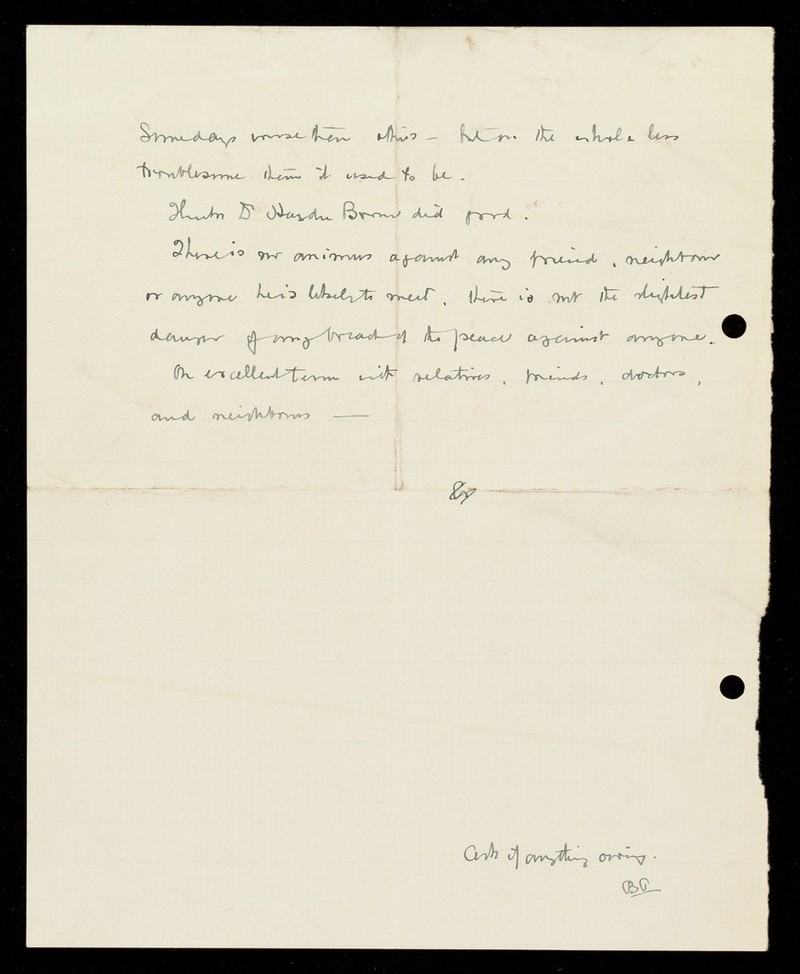 Somedays worse than others – but on the whole less
troublesome than it used to be.
Dr Haydn Brown did good.
There is no animus against any friend, neighbour
or anyone he is likely to meet, there is not the slightest
danger of any breach of the peace against anyone.
On excellent term with relatives, friends, doctors,
and neighbours —
Ask if anything owing.